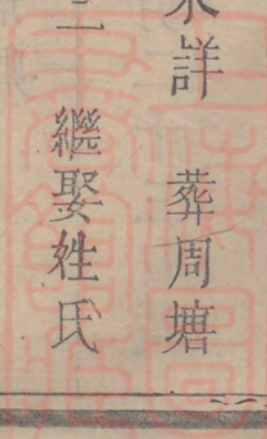 詳 葬周塘
繼娶姓氏